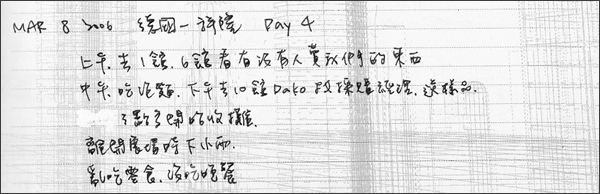 MAR 8 2006 德國-科隆 Day 4
上午去1館、6館看有沒有人賣我們的東西
中午吃泡麵. 下午去10館Dako 投標處理. 送樣品.
3點多開始收攤.
離開展場時下小雨.
亂吃零食. 沒吃晚餐